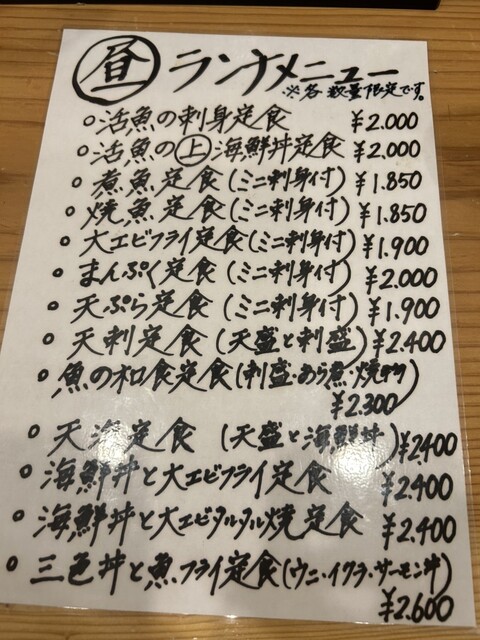 昼 ランチメニュー
※各数量限定です。
○活魚の刺身定食 ¥2.000
○活魚の上海鮮丼定食 ¥2,000
○煮魚定食(ミニ刺身付) ¥1.850
○焼魚定食(ミニ刺身付) ¥1.850
○大エビフライ定食(ミニ刺身付) ¥1.900
○まんぷく定食(ミニ刺身付) ¥2.000
○天ぷら定食(ミニ刺身付) ¥1.900
○天刺定食(天盛と刺盛) ¥2.400
○魚の和食定食(刺盛・あら煮・焼物)
¥2.300
○天海定食(天盛と海鮮丼) ¥2400
○海鮮丼と大エビフライ定食 ¥2.400
○海鮮丼と大エビタルタル焼定食 ¥2.400
○三色丼と魚フライ定食(ウニ・イクラ・サーモン丼)
¥2.600